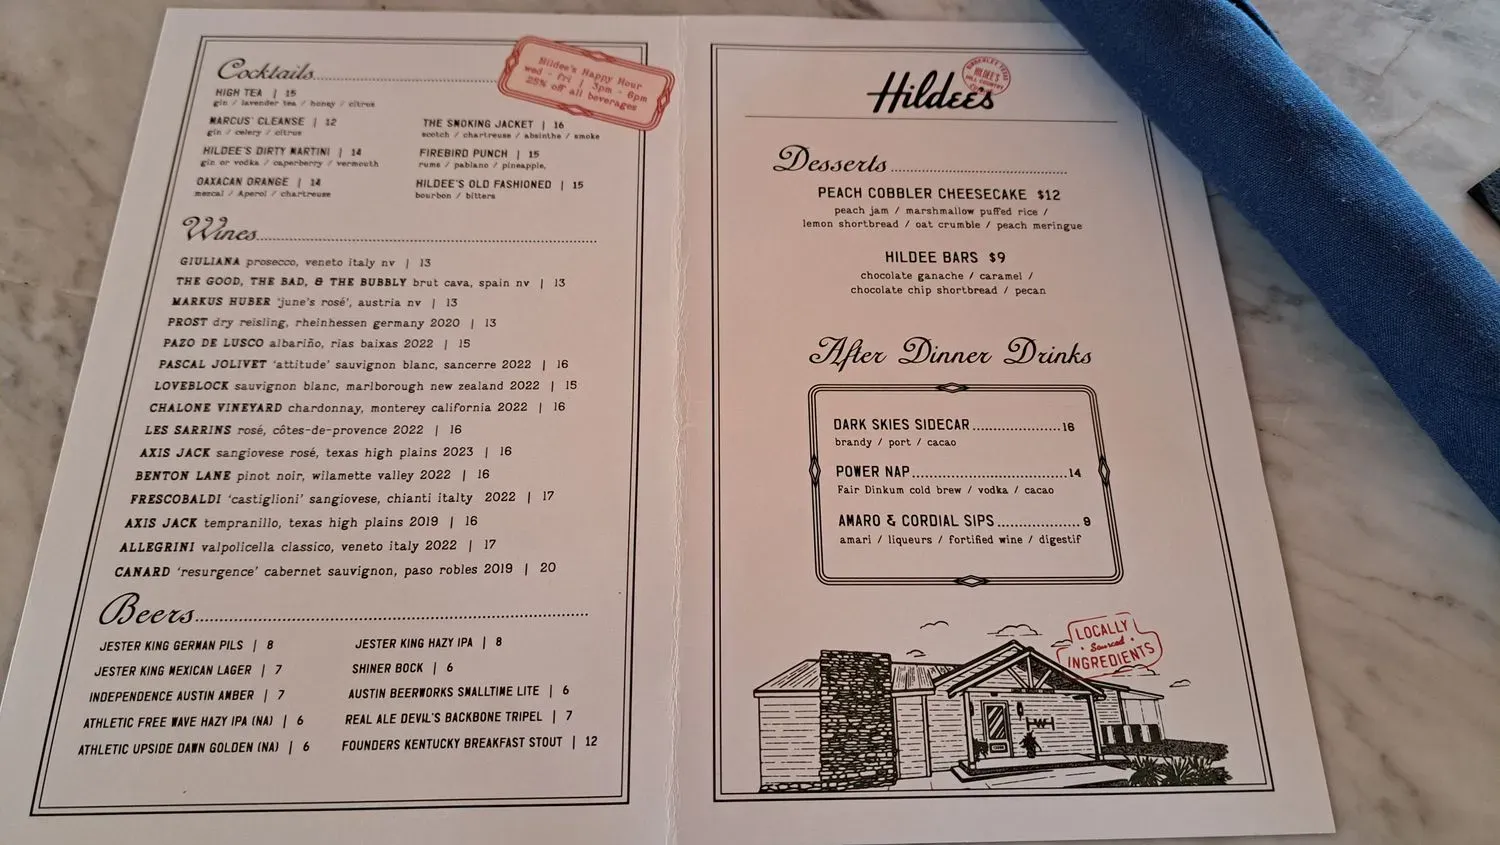 Cocktails
Hildee's Happy Hour
wed - fri | 3pm - 6pm
25% off all beverages
HIGH TEA | 15
gin / lavender tea / honey / citrus
MARCUS' CLEANSE | 12
gin / celery / citrus
HILDEE'S DIRTY MARTINI | 14
gin or vodka / caperberry / vermouth
OAXACAN ORANGE | 14
mezcal / Aperol / chartreuse
THE SMOKING JACKET | 16
scotch / chartreuse / absinthe / smoke
FIREBIRD PUNCH | 15
rums / pablano / pineapple,
HILDEE'S OLD FASHIONED | 15
bourbon / bitters
Wines
GIULIANA prosecco, veneto italy nv | 13
THE GOOD, THE BAD, & THE BUBBLY brut cava, spain nv | 13
MARKUS HUBER 'june's rosé', austria nv | 13
PROST dry reisling, rheinhessen germany 2020 | 13
PAZO DE LUSCO albariño, rias baixas 2022 | 15
PASCAL JOLIVET 'attitude' sauvignon blanc, sancerre 2022 | 16
LOVEBLOCK sauvignon blanc, marlborough new zealand 2022 | 15
CHALONE VINEYARD chardonnay, monterey california 2022 | 16
LES SARRINS rosé, côtes-de-provence 2022 | 16
AXIS JACK sangiovese rosé, texas high plains 2023 | 16
BENTON LANE pinot noir, wilamette valley 2022 | 16
FRESCOBALDI 'castiglioni' sangiovese, chianti italty 2022 | 17
AXIS JACK tempranillo, texas high plains 2019 | 16
ALLEGRINI valpolicella classico, veneto italy 2022 | 17
CANARD 'resurgence' cabernet sauvignon, paso robles 2019 | 20
Beers
JESTER KING GERMAN PILS | 8
JESTER KING MEXICAN LAGER | 7
INDEPENDENCE AUSTIN AMBER | 7
ATHLETIC FREE WAVE HAZY IPA (NA) | 6
ATHLETIC UPSIDE DAWN GOLDEN (NA) | 6
JESTER KING HAZY IPA | 8
SHINER BOCK | 6
AUSTIN BEERWORKS SMALLTIME LITE | 6
REAL ALE DEVIL'S BACKBONE TRIPEL | 7
FOUNDERS KENTUCKY BREAKFAST STOUT | 12
Hildee's
HILDEE'S
HILL COUNTRY
Desserts
PEACH COBBLER CHEESECAKE $12
peach jam / marshmallow puffed rice /
lemon shortbread / oat crumble / peach meringue
HILDEE BARS $9
chocolate ganache / caramel /
chocolate chip shortbread / pecan
After Dinner Drinks
DARK SKIES SIDECAR 16
brandy / port / cacao
POWER NAP 14
Fair Dinkum cold brew / vodka / cacao
AMARO & CORDIAL SIPS 9
amari / liqueurs / fortified wine / digestif
LOCALLY
Sourced
INGREDIENTS